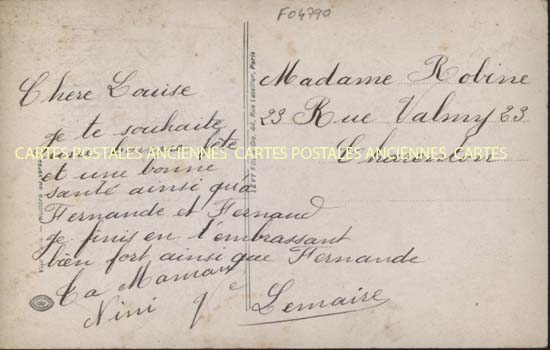 F04790
Chère Louise
je te souhaite
une bonne fête
et une bonne
santé ainsi qu'à
Fernande et Fernand
je finis en t'embrassant
bien fort ainsi que Fernande
Ta Maman
Nini
Lemaire
Madame Robine
23 Rue Valmy 23
CARTES POSTALES ANCIENNES CARTES POSTALES ANCIENNES CARTES POSTALES ANCIENNES
44, Rue Letellier, Paris